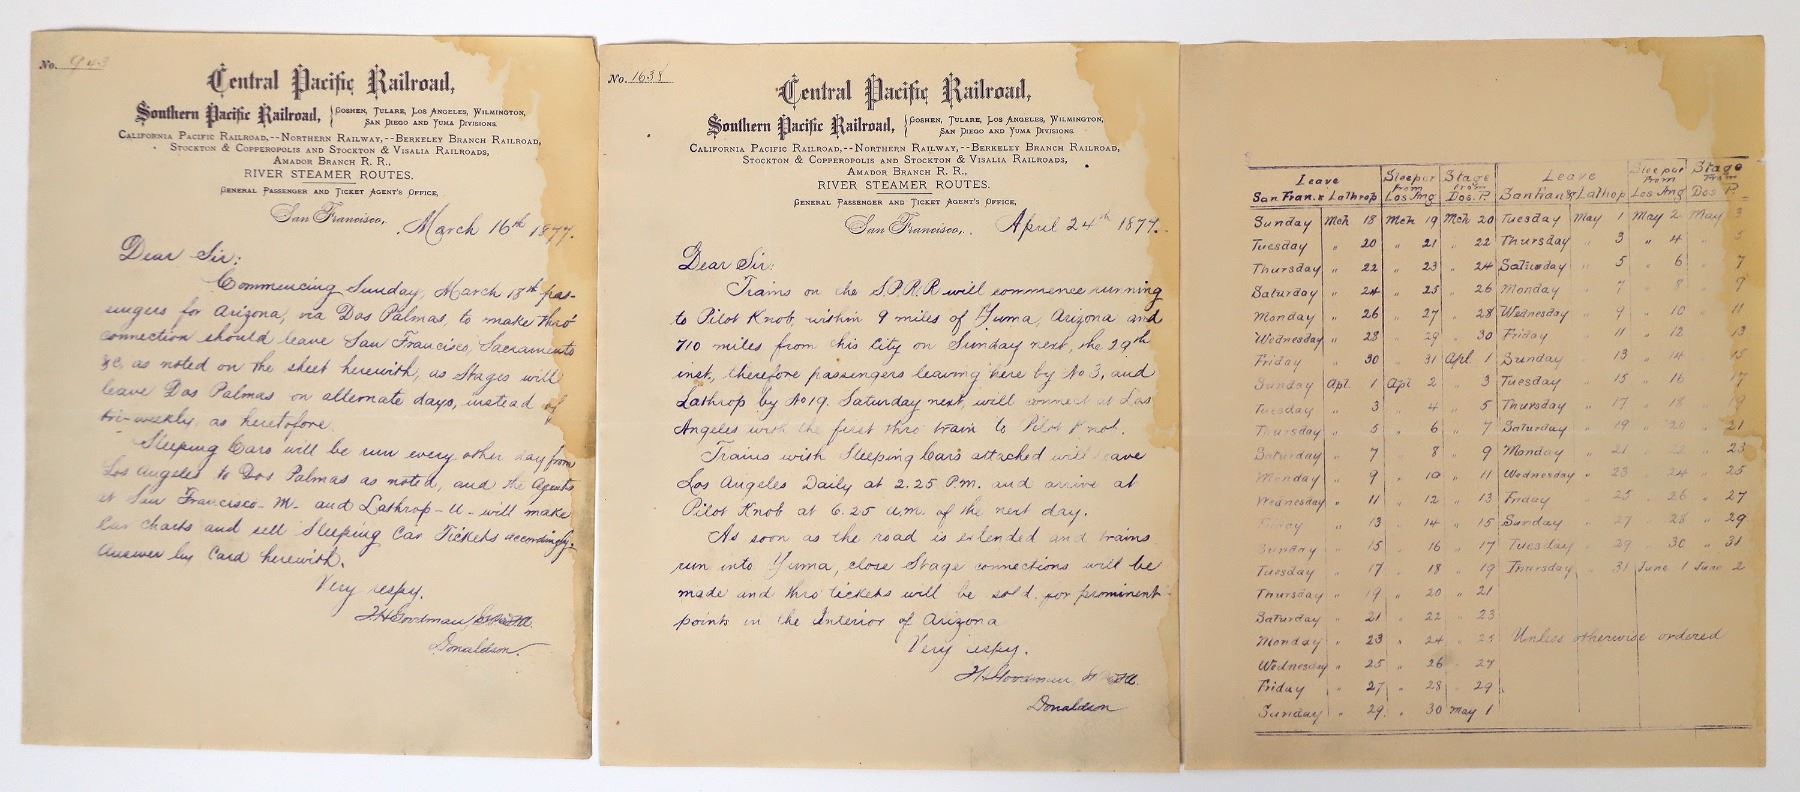 No. 943
Central Pacific Railroad,
Southern Pacific Railroad, Goshen, Tulare, Los Angeles, Wilmington,
San Diego and Yuma Divisions.
California Pacific Railroad,--Northern Railway,--Berkeley Branch Railroad,
Stockton & Copperopolis and Stockton & Visalia Railroads,
Amador Branch R. R.,
RIVER STEAMER ROUTES.
General Passenger and Ticket Agent's Office,
San Francisco, March 16th 1877.
Dear Sir:
Commencing Sunday, March 18th pas-
sengers for Arizona, via Dos Palmas, to make thro'
connection should leave San Francisco, Sacramento
&c, as noted on the sheet herewith, as Stages will
leave Dos Palmas on alternate days, instead of
tri-weekly as heretofore.
Sleeping Cars will be run every other day from
Los Angeles to Dos Palmas as noted, and the Agents
at San Francisco - M - and Lathrop - U - will make
Car charts and sell Sleeping Car Tickets accordingly.
Answer by Card herewith.
Very respy.
T.H. Goodman
Donaldson.
No. 1638
Central Pacific Railroad,
Southern Pacific Railroad, Goshen, Tulare, Los Angeles, Wilmington,
San Diego and Yuma Divisions.
California Pacific Railroad,--Northern Railway,--Berkeley Branch Railroad,
Stockton & Copperopolis and Stockton & Visalia Railroads,
Amador Branch R. R.,
RIVER STEAMER ROUTES.
General Passenger and Ticket Agent's Office,
San Francisco, April 24th 1877.
Dear Sir:
Trains on the S.P.R.R will commence running
to Pilot Knob, within 9 miles of Yuma, Arizona and
710 miles from this City on Sunday next, the 29th
inst, therefore passengers leaving here by No 3, and
Lathrop by No 19. Saturday next, will connect at Los
Angeles with the first thro' train to Pilot Knob.
Trains with Sleeping Cars attached will leave
Los Angeles Daily at 2.25 P.m. and arrive at
Pilot Knob at 6.25 a.m. of the next day.
As soon as the road is extended and trains
run into Yuma, close Stage connections will be
made and thro' tickets will be sold for prominent
points in the Interior of Arizona
Very respy.
T.H. Goodman
Donaldson
Leave San Fran. & Lathrop Sleeper from Los Ang Stage from Dos. P. Leave San Fran & Lathrop Sleeper from Los Ang Stage From Dos P.
Sunday Mch 18 Mch 19 Mch 20 Tuesday May 1 May 2 May 3
Tuesday " 20 " 21 " 22 Thursday " 3 " 4 " 5
Thursday " 22 " 23 " 24 Saturday " 5 " 6 " 7
Saturday " 24 " 25 " 26 Monday " 7 " 8 " 9
Monday " 26 " 27 " 28 Wednesday " 9 " 10 " 11
Wednesday " 28 " 29 " 30 Friday " 11 " 12 " 13
Friday " 30 " 31 Apl 1 Sunday " 13 " 14 " 15
Sunday Apl. 1 Apl 2 " 3 Tuesday " 15 " 16 " 17
Tuesday " 3 " 4 " 5 Thursday " 17 " 18 " 19
Thursday " 5 " 6 " 7 Saturday " 19 " 20 " 21
Saturday " 7 " 8 " 9 Monday " 21 " 22 " 23
Monday " 9 " 10 " 11 Wednesday " 23 " 24 " 25
Wednesday " 11 " 12 " 13 Friday " 25 " 26 " 27
Friday " 13 " 14 " 15 Sunday " 27 " 28 " 29
Sunday " 15 " 16 " 17 Tuesday " 29 " 30 " 31
Tuesday " 17 " 18 " 19 Thursday " 31 June 1 June 2
Thursday " 19 " 20 " 21
Saturday " 21 " 22 " 23
Monday " 23 " 24 " 25 Unless otherwise ordered
Wednesday " 25 " 26 " 27
Friday " 27 " 28 " 29
Sunday " 29 " 30 May 1